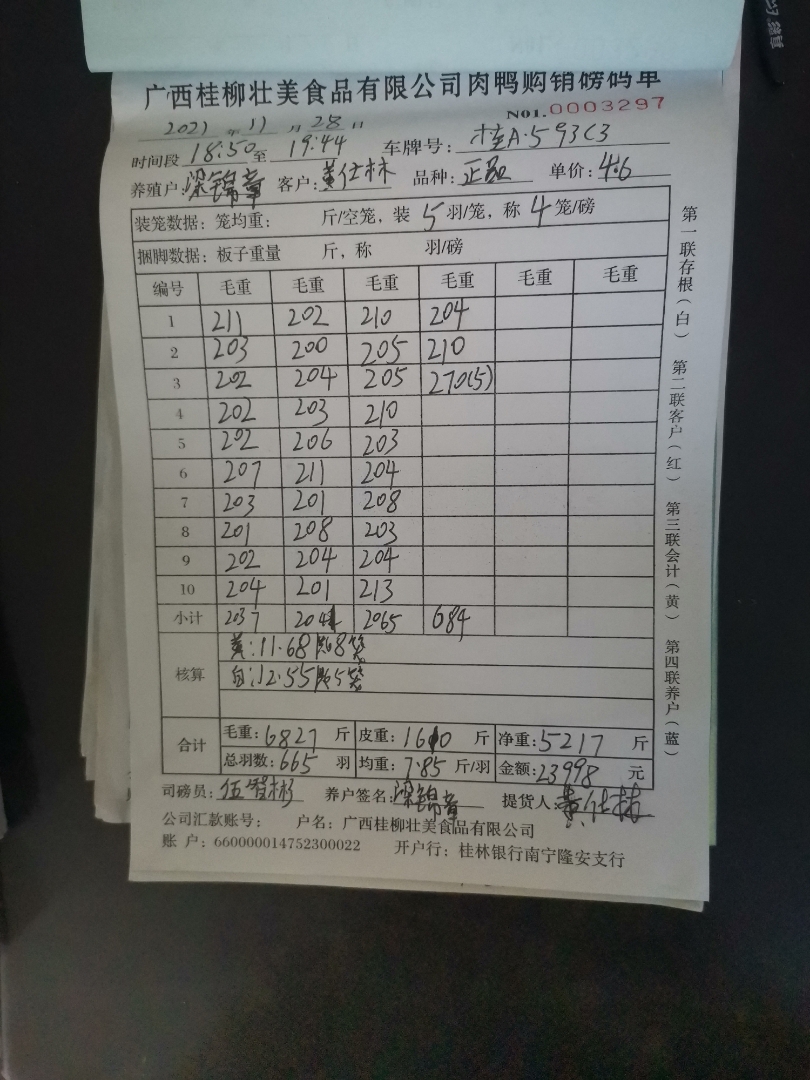 广西桂柳壮美食品有限公司肉鸭购销磅码单
NO1.0003297
2021年11月28日
时间段 18:50 至 19:44 车牌号: 桂A·593C3
养殖户: 梁锦章 客户: 黄仕林 品种: 正品 单价: 4.6
装笼数据: 笼均重: 斤/空笼, 装 5 羽/笼, 称 4 笼/磅
捆脚数据: 板子重量 斤, 称 羽/磅
编号 毛重 毛重 毛重 毛重 毛重 毛重
1 211 202 210 204
2 203 200 205 210
3 202 204 205 270(5)
4 202 203 210
5 202 206 203
6 207 211 204
7 203 201 208
8 201 208 203
9 202 204 204
10 204 201 213
小计 2037 2041 2065 684
核算 黄:11.68 8笼
白:12.55 5笼
合计 毛重: 6827 斤 皮重: 1610 斤 净重: 5217 斤
总羽数: 665 羽 均重: 7.85 斤/羽 金额: 23998 元
司磅员: 伍智彬 养户签名: 梁锦章 提货人: 黄仕林
公司汇款账号: 户名: 广西桂柳壮美食品有限公司
账 户: 660000014752300022 开户行: 桂林银行南宁隆安支行
第一联存根(白) 第二联客户(红) 第三联会计(黄) 第四联养户(蓝)